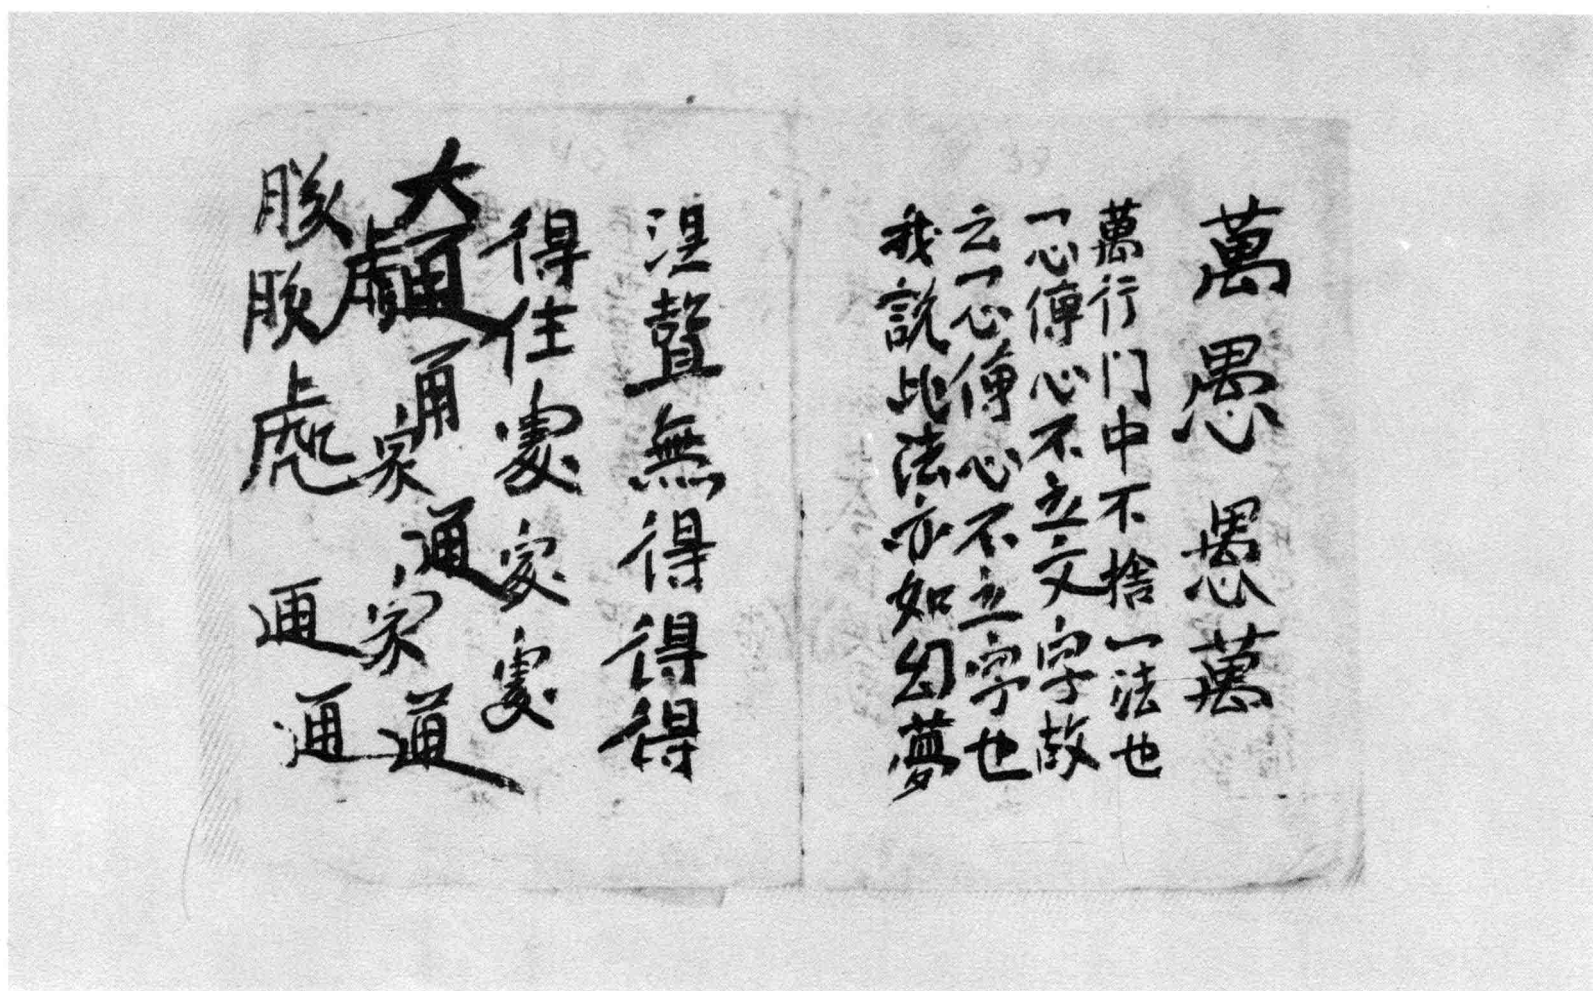 萬愚愚萬
萬行门中不捨一法也
一心傳心不立文字故
云一心傳心不立字也
我説此法亦如幻夢
涅聲無得得得
得住處家處
大通通通道
處家家
處通通